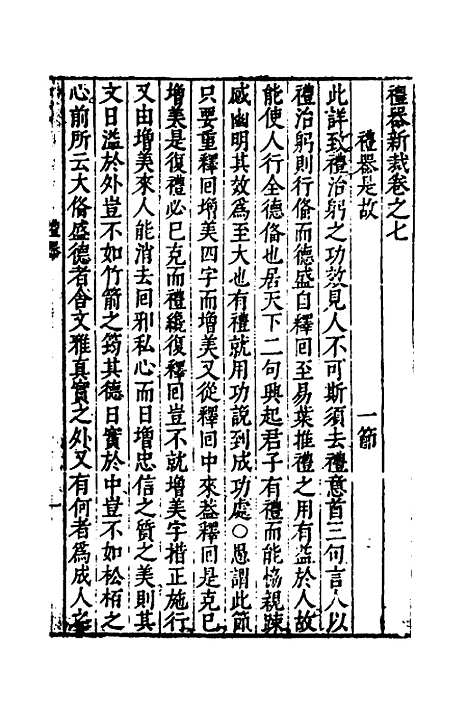 禮器新裁卷之七
禮器是故 一節
此詳致禮治躬之功效見人不可斯須去禮意首三句言人以
禮治躬則行脩而德盛自釋回至易葉推禮之用有益於人故
能使人行全德脩也居天下二句與起君子有禮而能恊親踈
感幽明其效為至大也有禮就用功說到成功處○愚謂此節
只要重釋回增美四字而增美又從釋回中來葢釋回是克己
增美是復禮必己克而禮纔復釋回豈不就增美字措正施行
又由增美來人能消去回邪私心而日增忠信之質之美則其
文日溢於外豈不如竹箭之筠其德日實於中豈不如松栢之
心前所云大俻盛德者舍文雅真實之外又有何者為成人之
禮器
一